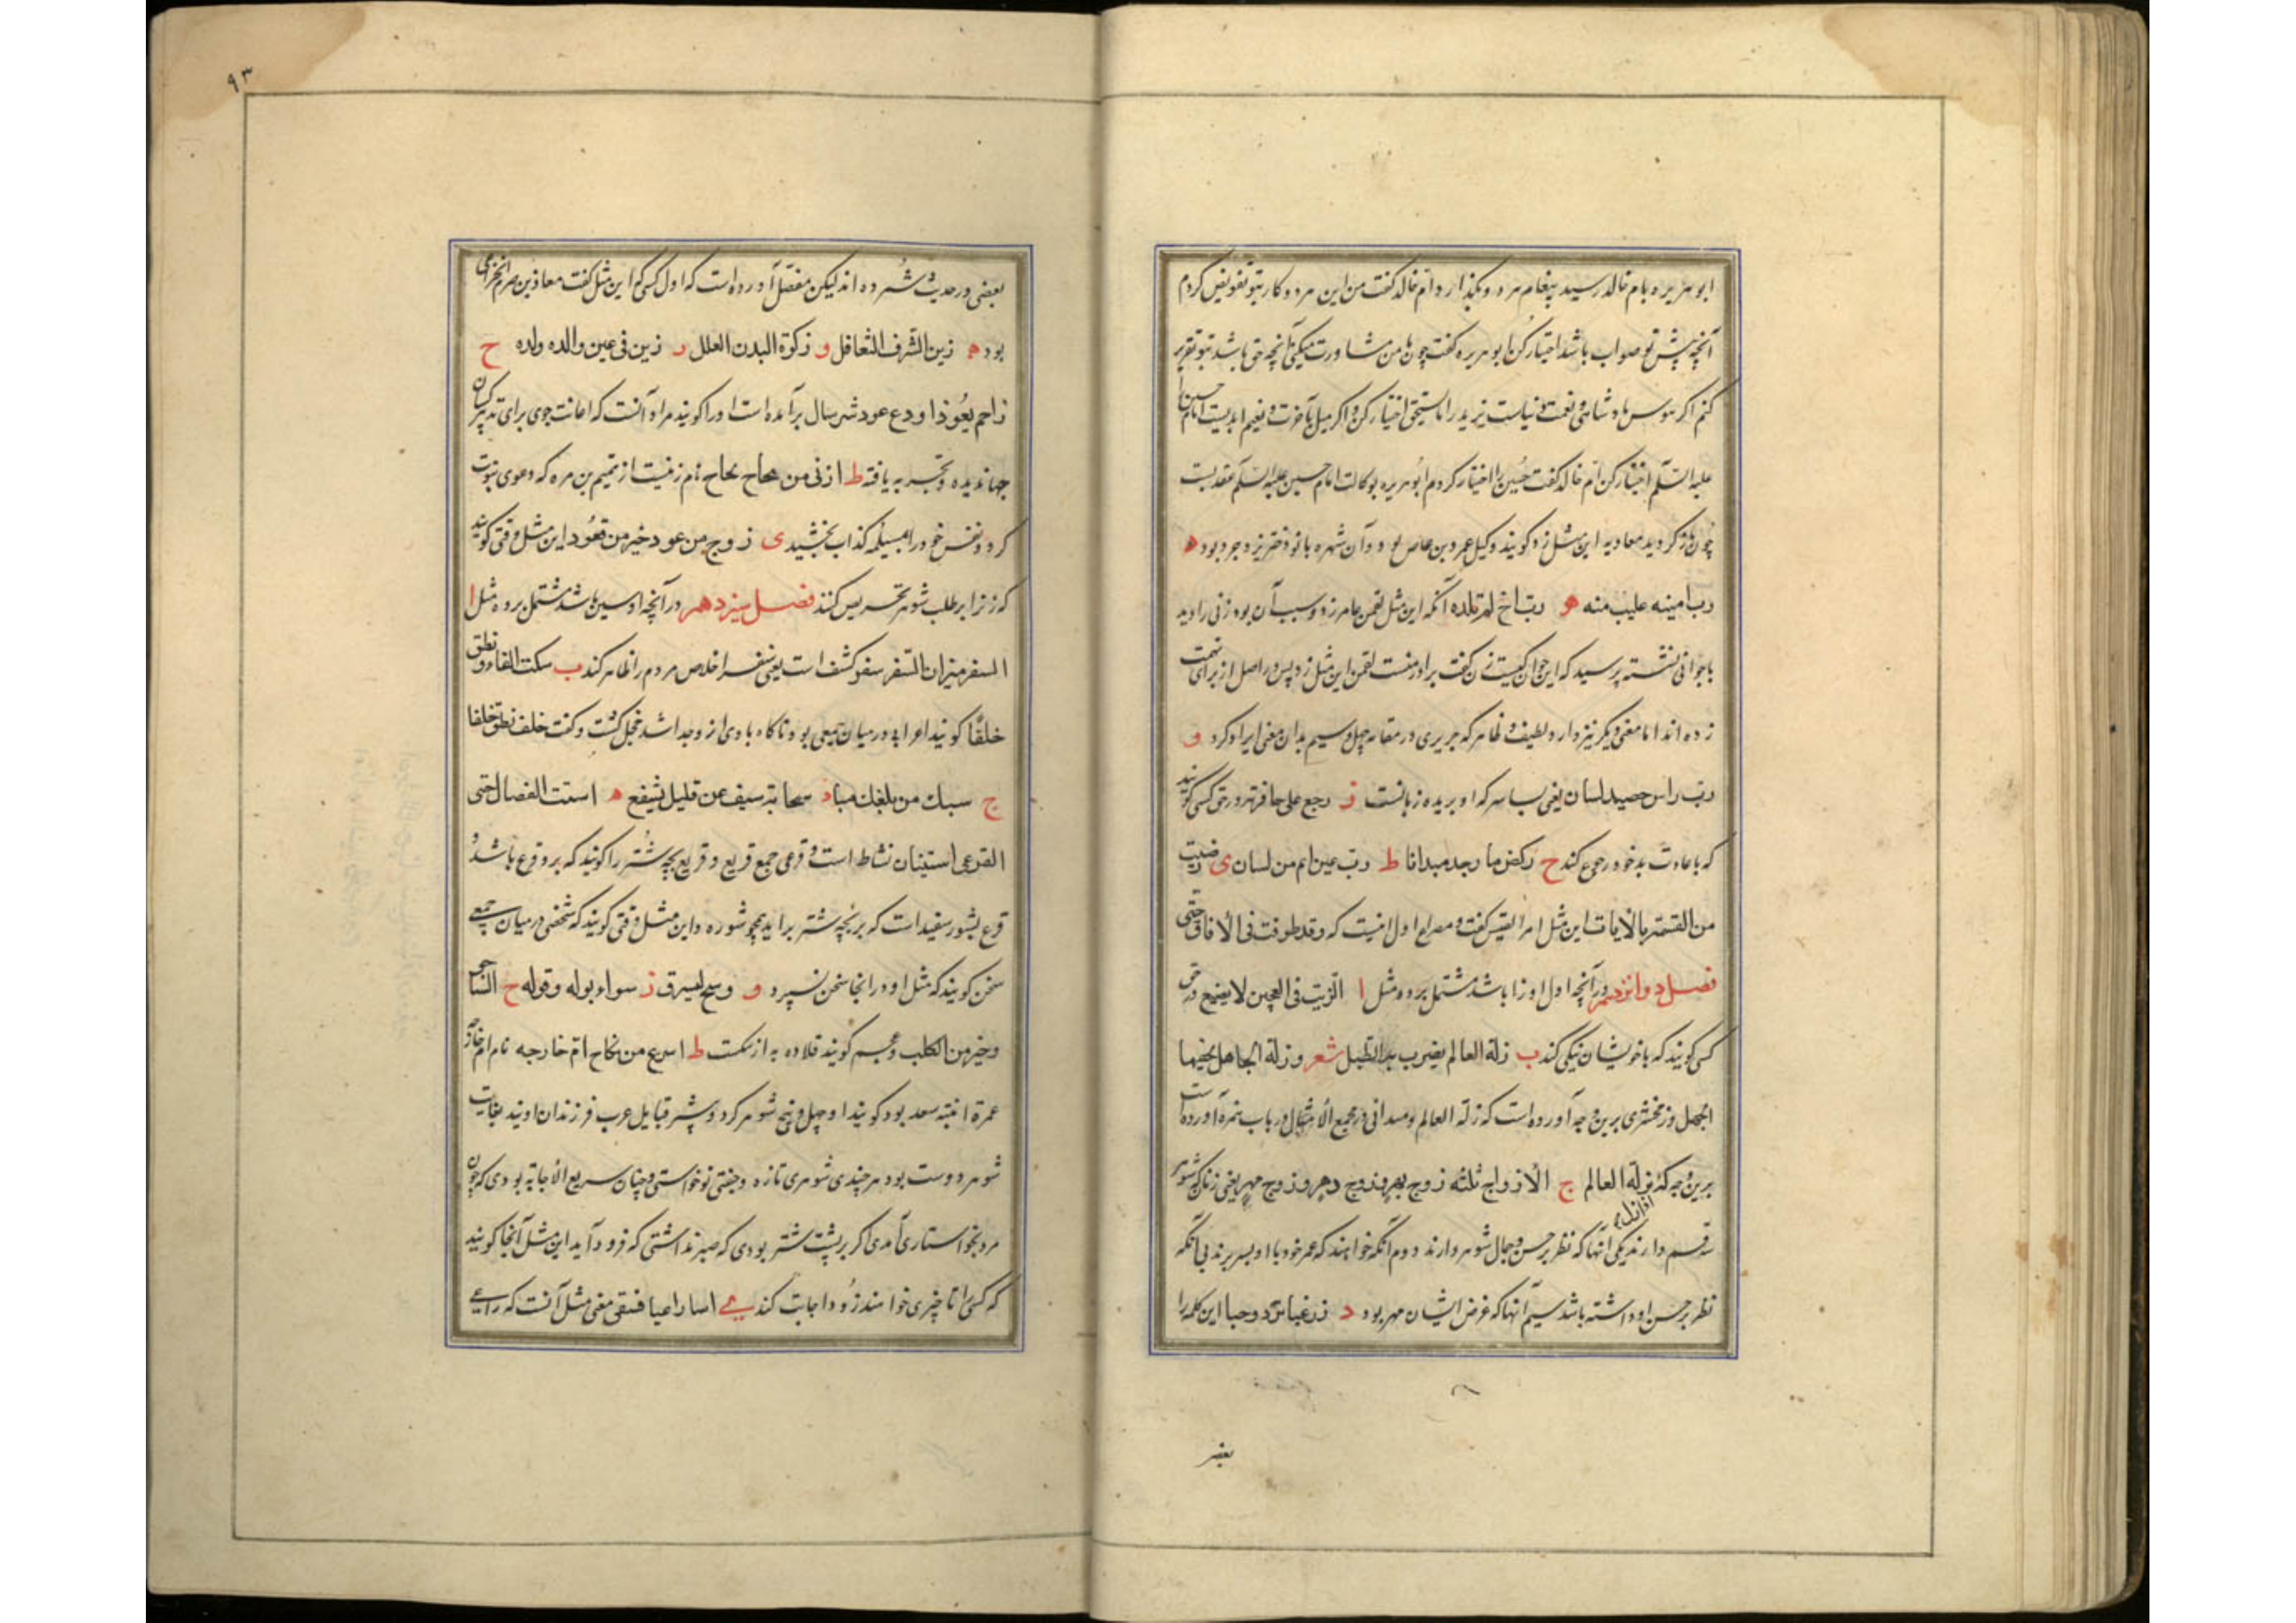 ابو هریره بام خالد رسید پیغام هر دو بگذارد ام خالد گفت من این هر دو کار بتو تفویض کردم
آنچه پیش تو صواب باشد اختیار کن ابو هریره گفت چون با من مشاورت میکنی آنچه حق باشد بتو تقریر
کنم اگر هوس پادشاهی و نعمت دنیاست یزید را اختیار کن و اگر میل بآخرت و نعیم ابدیست امام حسین را
علیه السلم اختیار کن ام خالد گفت حسین را اختیار کردم ابو هریره بوکالت امام حسین علیه السلم عقد بست
چون باز گردید معاویه این مثل زد گویند وکیل عمرو بن عاص بود و آن شهره بانو دختر یزدجرد بود ه
رب امینه علیب منه و رب اخ لم تلده آنکه این مثل لقمن عامر زد و سبب آن بود زنی را دید
با جوانی نشسته پرسید که این جوان کیست زن گفت برادر منست لقمن این مثل زد پس در اصل از برای تهمت
زده اند اما معنی دیگر نیز دارد لطیف و ظاهر که حریری در مقامه چهل و سیم بدان معنی ایراد کرد و
رب راس حصید لسان یعنی بسا سر که او بریده زبانست ز رجع علی حافرته در حق کسی گویند
که با عادت بد خود رجوع کند ح رکض ما وجد میدانا ط رب عین انم من لسان ی رضیت
من الغنیمة بالایاب این مثل امرا القیس گفت و مصراع اول اینست که وقد طوفت فی الافاق حتی
فصل دوانزدهم در آنچه اول او زا باشد مشتمل بر ده مثل ا الزیت فی العجین لا یضیع در حق
کسی گویند که با خویشان نیکی کند ب زلة العالم یضرب بها الطبل شعر و زلة الجاهل یخفیها
الجهل و زمخشری برین وجه آورده است که زلة العالم و میدانی در مجمع الامثال در باب نمرة آورده است
برین وجه که زلة العالم ج الازواج ثلثه زوج بهر و زوج دهر و زوج مهر یعنی زنان که شوهر
سه قسم دارند یکی آنها که نظر بر حسن و جمال شوهر دارند دوم آنکه خواهند که عمر خود با او بسر برند بی آنکه
نظر بر حسن او داشته باشد سیم آنها که غرض ایشان مهر بود د زر غبا تزدد حبا این کلمه را
بعضی
٩٣
بعضی در حدیث شمرده اند لیکن مفضل آورده است که اول کسی که این مثل گفت معاذ بن صرم الخزاعی
بود ه زین الشرف التغافل و زکوة البدن العلل ز زین فی عین والده ولده ح
زاحم بعود او دع عود شتر سال برآمده است او را گویند مراد آنست که اعانت جوی برای تدبیر کسان
جهاندیده و تجربه یافته ط ازنی من سجاح سجاح نام زنیست از تمیم بن مره که دعوی نبوت
کرد و نفس خود را بمسیلمه کذاب بخشید ی زوج من عود خیر من قعود این مثل وقتی گویند
که زن را بر طلب شوهر تحریص کنند فصل سیزدهم در آنچه او سین باشد مشتمل بر ده مثل ا
السفر میزان السفر سفر کشف است یعنی سفر اخلاص مردم را ظاهر کند ب سکت الفا و نطق
خلفا گویند اعرابی در میان جمعی بود ناگاه بادی از وجدا شد خجل گشت و گفت خلف نطق خلفا
ج سبک من بلغک مباد سحابة سیف عن قلیل یشفع ه استنت الفصال حتی
القرعی استینان نشاط است و قرعی جمع قریع و قریع بچه شتر را گویند که برو قرع باشد و
قرع بثور سفید است که بر بچه شتر براید همچو شوره و این مثل وقتی گویند که شخصی در میان جمعی
سخن گویند که مثل او در انجا سخن نسپرد و وسح لیسرق ز سواء بوله و قوله ح
و خیر من الکلب و عجم گویند قلاده به از سگست ط اسرع من نکاح ام خارجه نام ام خارجه
عمرة ابنته سعد بود گویند او چهل و پنج شوهر کرد و بیشتر قبایل عرب فرزندان اویند بغایت
شوهر دوست بود هر چندی شوهری تازه و جفتی نو خواستی و چنان سریع الاجابة بودی که چون
مرد بخواستاری آمدی اگر بر پشت شتر بودی که صبر نداشتی که فرود آید این مثل آنجا گویند
که کسی را تا چیزی خواهند زود اجابت کند ی اساء راعیا فسقی معنی مثل آنست که راعی